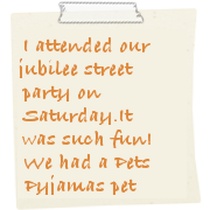 I attended our
jubilee street
party on
Saturday.It
was such fun!
We had a Pets
Pyjamas pet